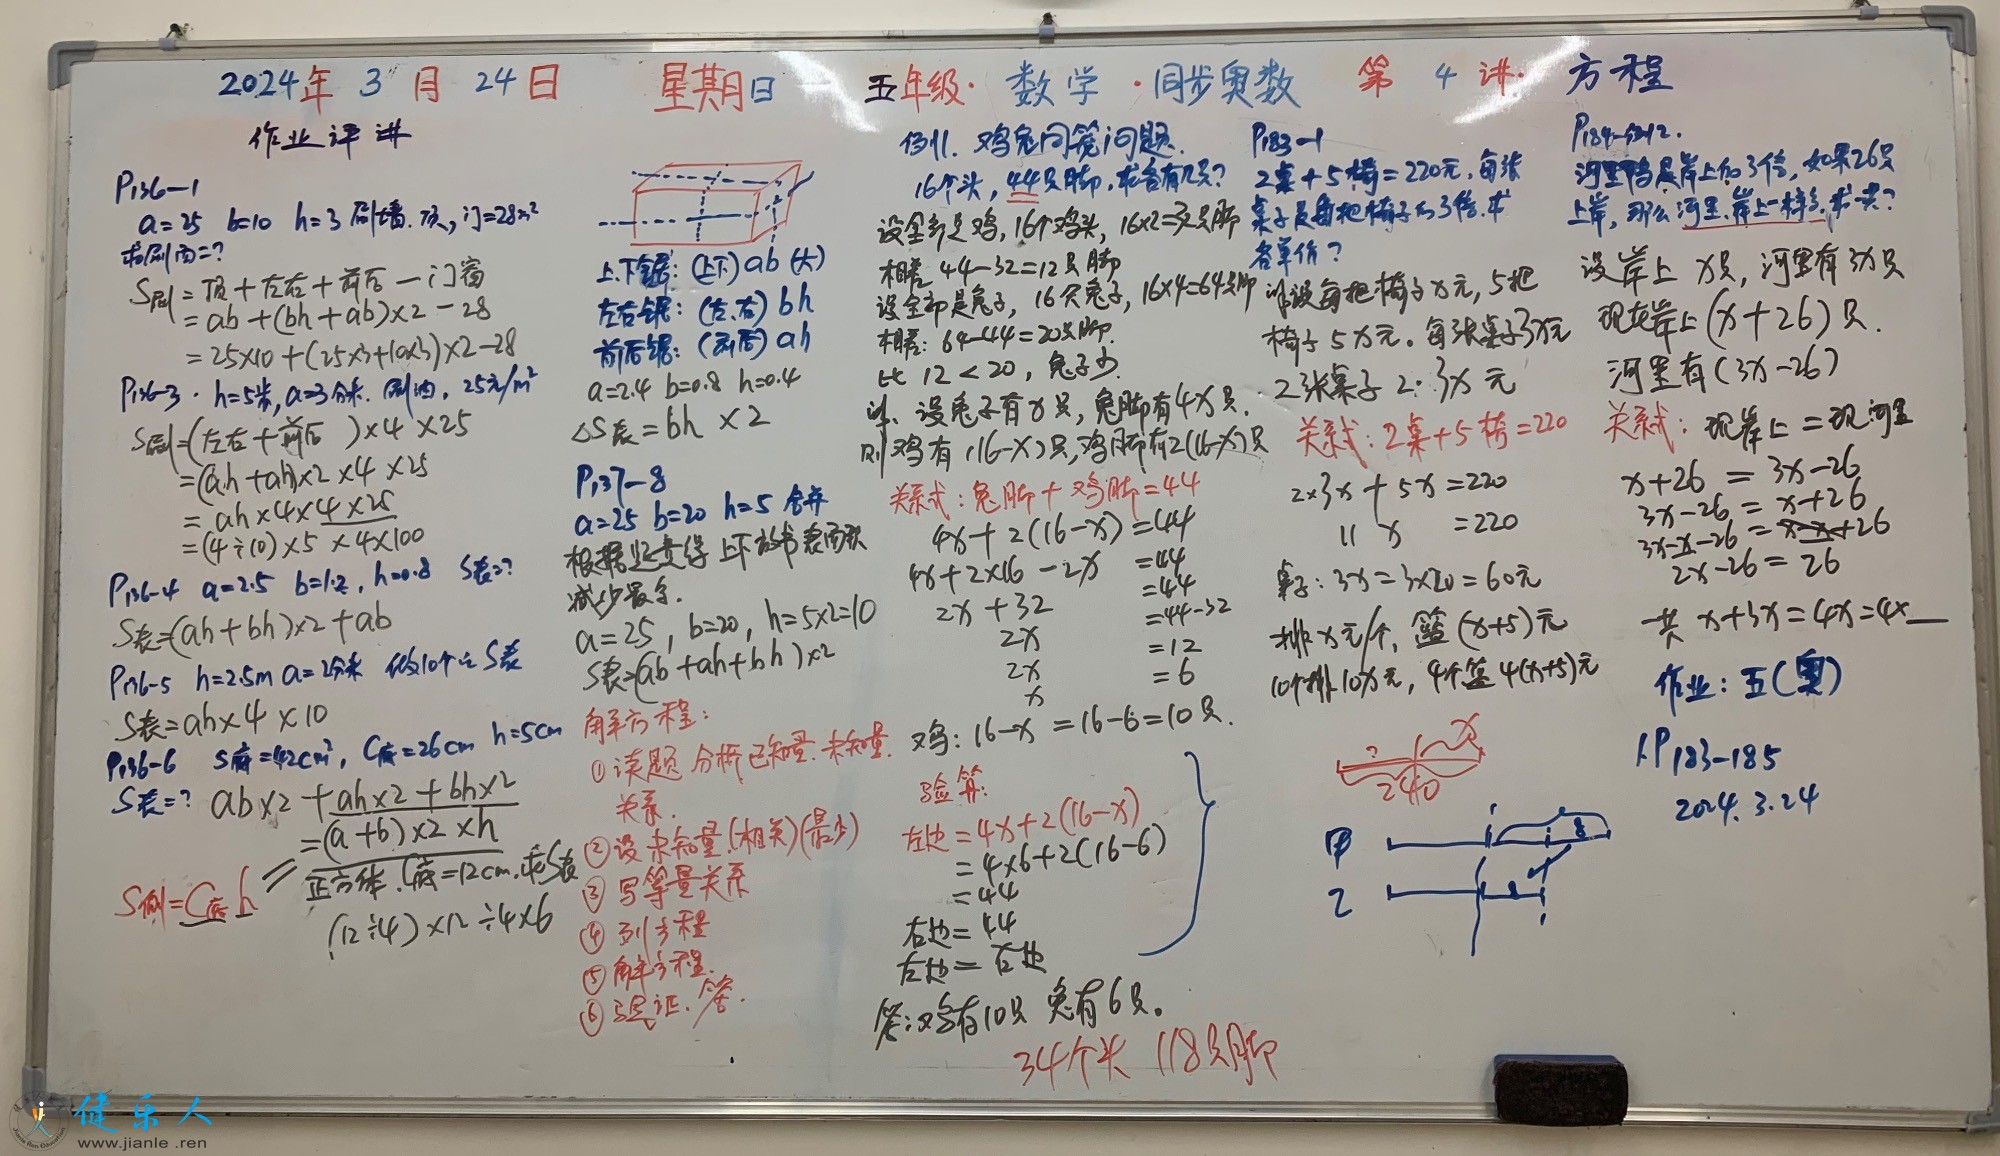 2024年 3 月 24日 星期日 五年级·数学·同步奥数 第 4 讲· 方程
作业评讲
P136-1
a=25 b=10 h=3 刷墙.顶,门=28m²
求刷面=?
S刷=顶+左右+前后一门窗
=ab+(bh+ab)×2-28
=25×10+(25×3+10×3)×2-28
P136-3. h=5米, a=3分米. 刷油, 25元/m²
S刷=(左右+前后 )×4×25
=(ah+ah)×2×4×25
=ah×4×4×25
=(4÷10)×5×4×100
P136-4 a=2.5 b=1.2, h=0.8 S表=?
S表=(ah+bh)×2+ab
P136-5 h=2.5m a=2分米 做10个 S表
S表=ah×4×10
P136-6 S底=42cm², C底=26cm h=5cm
S表=? ab×2+ah×2+bh×2
=(a+b)×2×h
S侧=C底h
正方体.C底=12cm.求S表
(12÷4)×12÷4×6
上下锯: (上下) ab (大)
左右锯: (左.右) bh
前后锯: (前后) ah
a=2.4 b=0.8 h=0.4
△S表=bh×2
P137-8
a=25 b=20 h=5 合并
根据 上下 表面积
减少最多.
a=25, b=20, h=5×2=10
S表=(ab+ah+bh)×2
解方程:
①读题 分析 已知量.未知量.
关系.
②设未知量(相关)(最少)
③写等量关系
④列方程
⑤解方程.
⑥验证.答.
例11. 鸡兔同笼问题.
16个头, 44只脚, 求各有几只?
设全部是鸡, 16个鸡头, 16×2=32只脚
相差 44-32=12只脚
设全部是兔子, 16只兔子, 16×4=64只脚
相差: 64-44=20只脚.
比 12<20, 兔子少.
设兔子有x只, 兔脚有4x只.
则鸡有(16-x)只, 鸡脚有2(16-x)只
关系式: 兔脚+鸡脚=44
4x+2(16-x)=44
4x+2×16-2x =44
2x+32 =44
2x =44-32
2x =12
x =6
鸡: 16-x=16-6=10只.
验算:
左边=4x+2(16-x)
=4×6+2(16-6)
=44
右边=44
左边=右边
答:鸡有10只 兔有6只。
34个头 118只脚
P183-1
2桌+5椅=220元. 每张
桌子是每把椅子的3倍.求
各单价?
设每把椅子x元, 5把
椅子5x元. 每张桌子3x元
2张桌子2·3x元
关系式: 2桌+5椅=220
2×3x+5x=220
11x =220
桌子: 3x=3×20=60元
排x元/个, 篮(x+5)元
10个排10x元, 4个篮4(x+5)元
? x
240
甲 8
乙
P184-例12.
河里鸭是岸上的3倍, 如果26只
上岸, 那么河里.岸上一样多.求一共?
设岸上x只, 河里有3x只
现在岸上(x+26)只.
河里有(3x-26)
关系式: 现岸上=现河里
x+26=3x-26
3x-26=x+26
3x-x-26=x-x+26
2x-26=26
一共 x+3x=4x=4×__
作业: 五(奥)
1.P183-185
2024.3.24
健乐人
www.jianle .ren